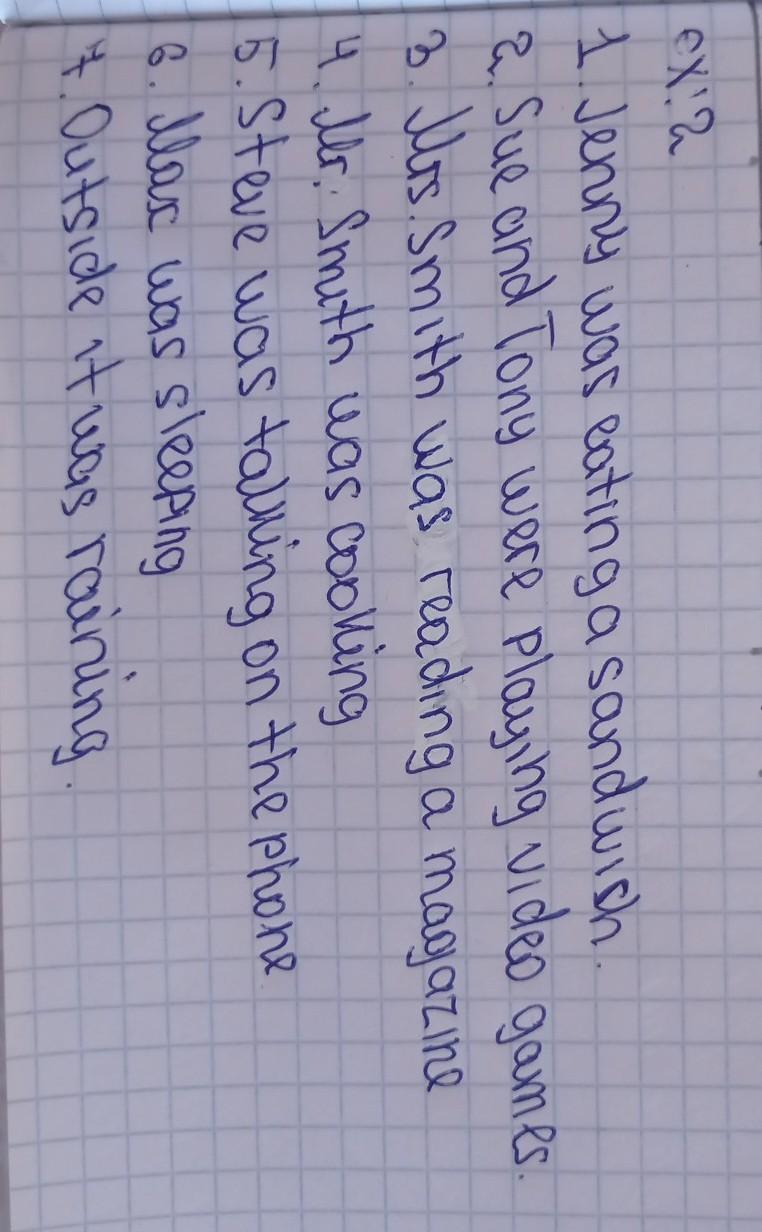 ex:2
1. Jenny was eating a sandwish.
2. Sue and Tony were playing video games.
3. Mrs. Smith was reading a magazine
4. Mr. Smith was cooking
5. Steve was talking on the phone
6. Max was sleeping
7. Outside it was raining.